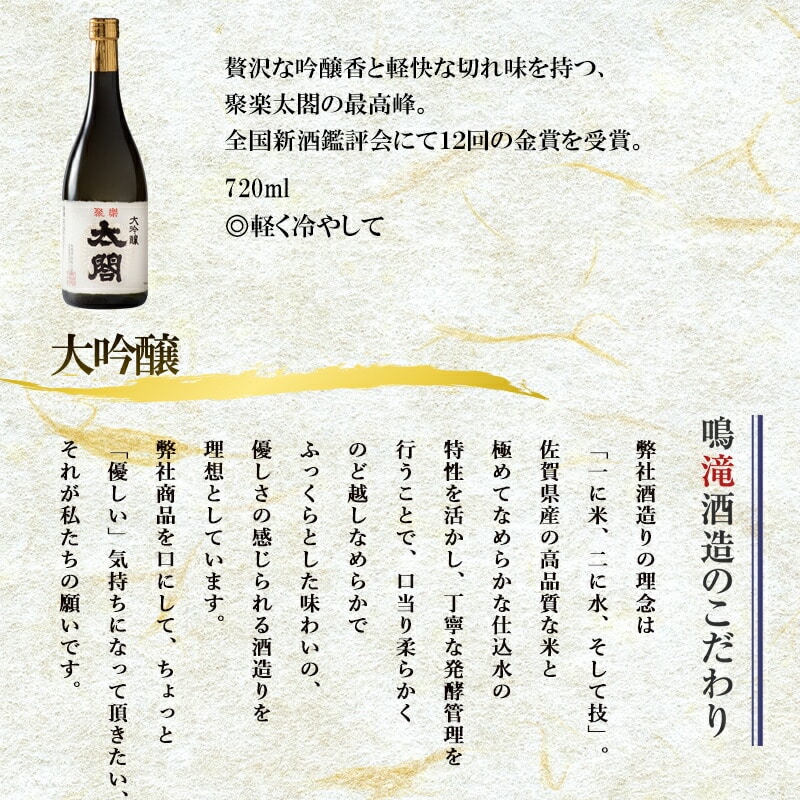 贅沢な吟醸香と軽快な切れ味を持つ、
聚楽太閤の最高峰。
全国新酒鑑評会にて12回の金賞を受賞。
720ml
◎軽く冷やして
聚楽
大吟醸
太閤
大吟醸
鳴滝酒造のこだわり
弊社酒造りの理念は
「一に米、二に水、そして技」。
佐賀県産の高品質な米と
極めてなめらかな仕込水の
特性を活かし、丁寧な発酵管理を
行うことで、口当り柔らかく
のど越しなめらかで
ふっくらとした味わいの、
優しさの感じられる酒造りを
理想としています。
弊社商品を口にして、ちょっと
「優しい」気持ちになって頂きたい、
それが私たちの願いです。